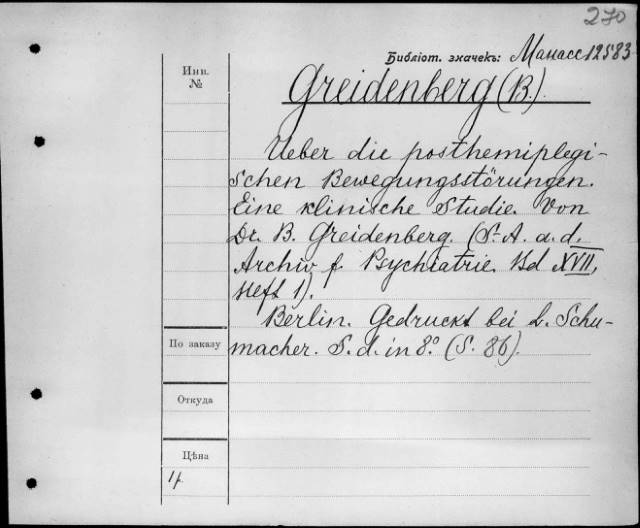 270
Библіот. значекъ: Манасс 12583
Инв.
№
Greidenberg (B.).
Ueber die posthemiplegi-
schen Bewegungsstörungen.
Eine klinische Studie. Von
Dr. B. Greidenberg. (S. A. a. d.
Archiv f. Psychiatrie. Bd XVII,
Heft 1).
Berlin. Gedruckt bei L. Schu-
По заказу
macher. S. d. in 8.º (S. 86).
Откуда
Цѣна